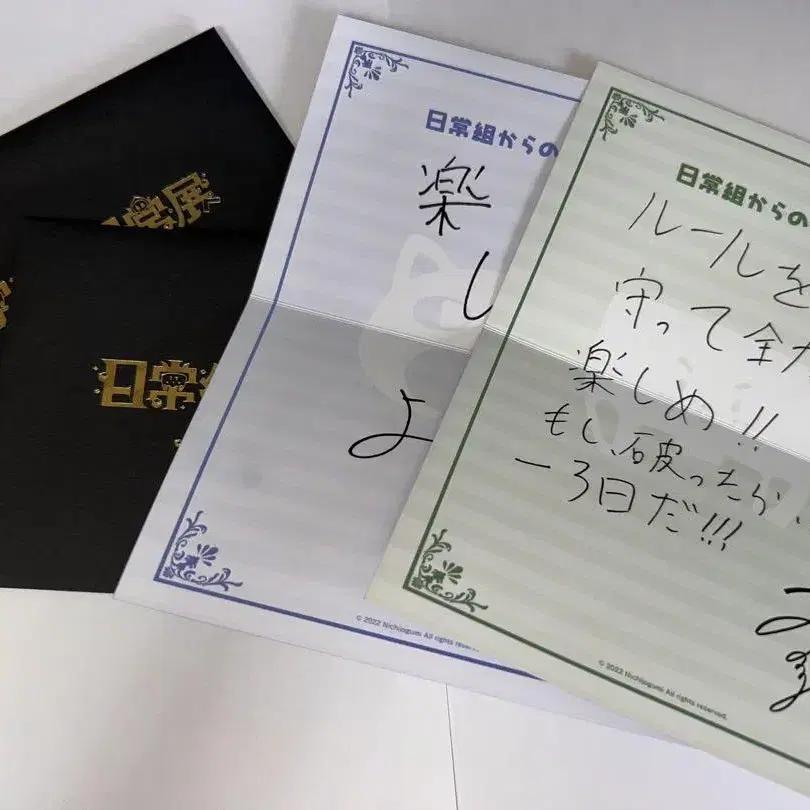 常展
日常
日常組からの
楽
し
よ
© 2022 Nichijogumi All rights reser
日常組からの
ルールを
守って全力
楽しめ!!
もし、破ったら、
-3日だ!!!
© 2022 Nichijogumi All rights reserved.